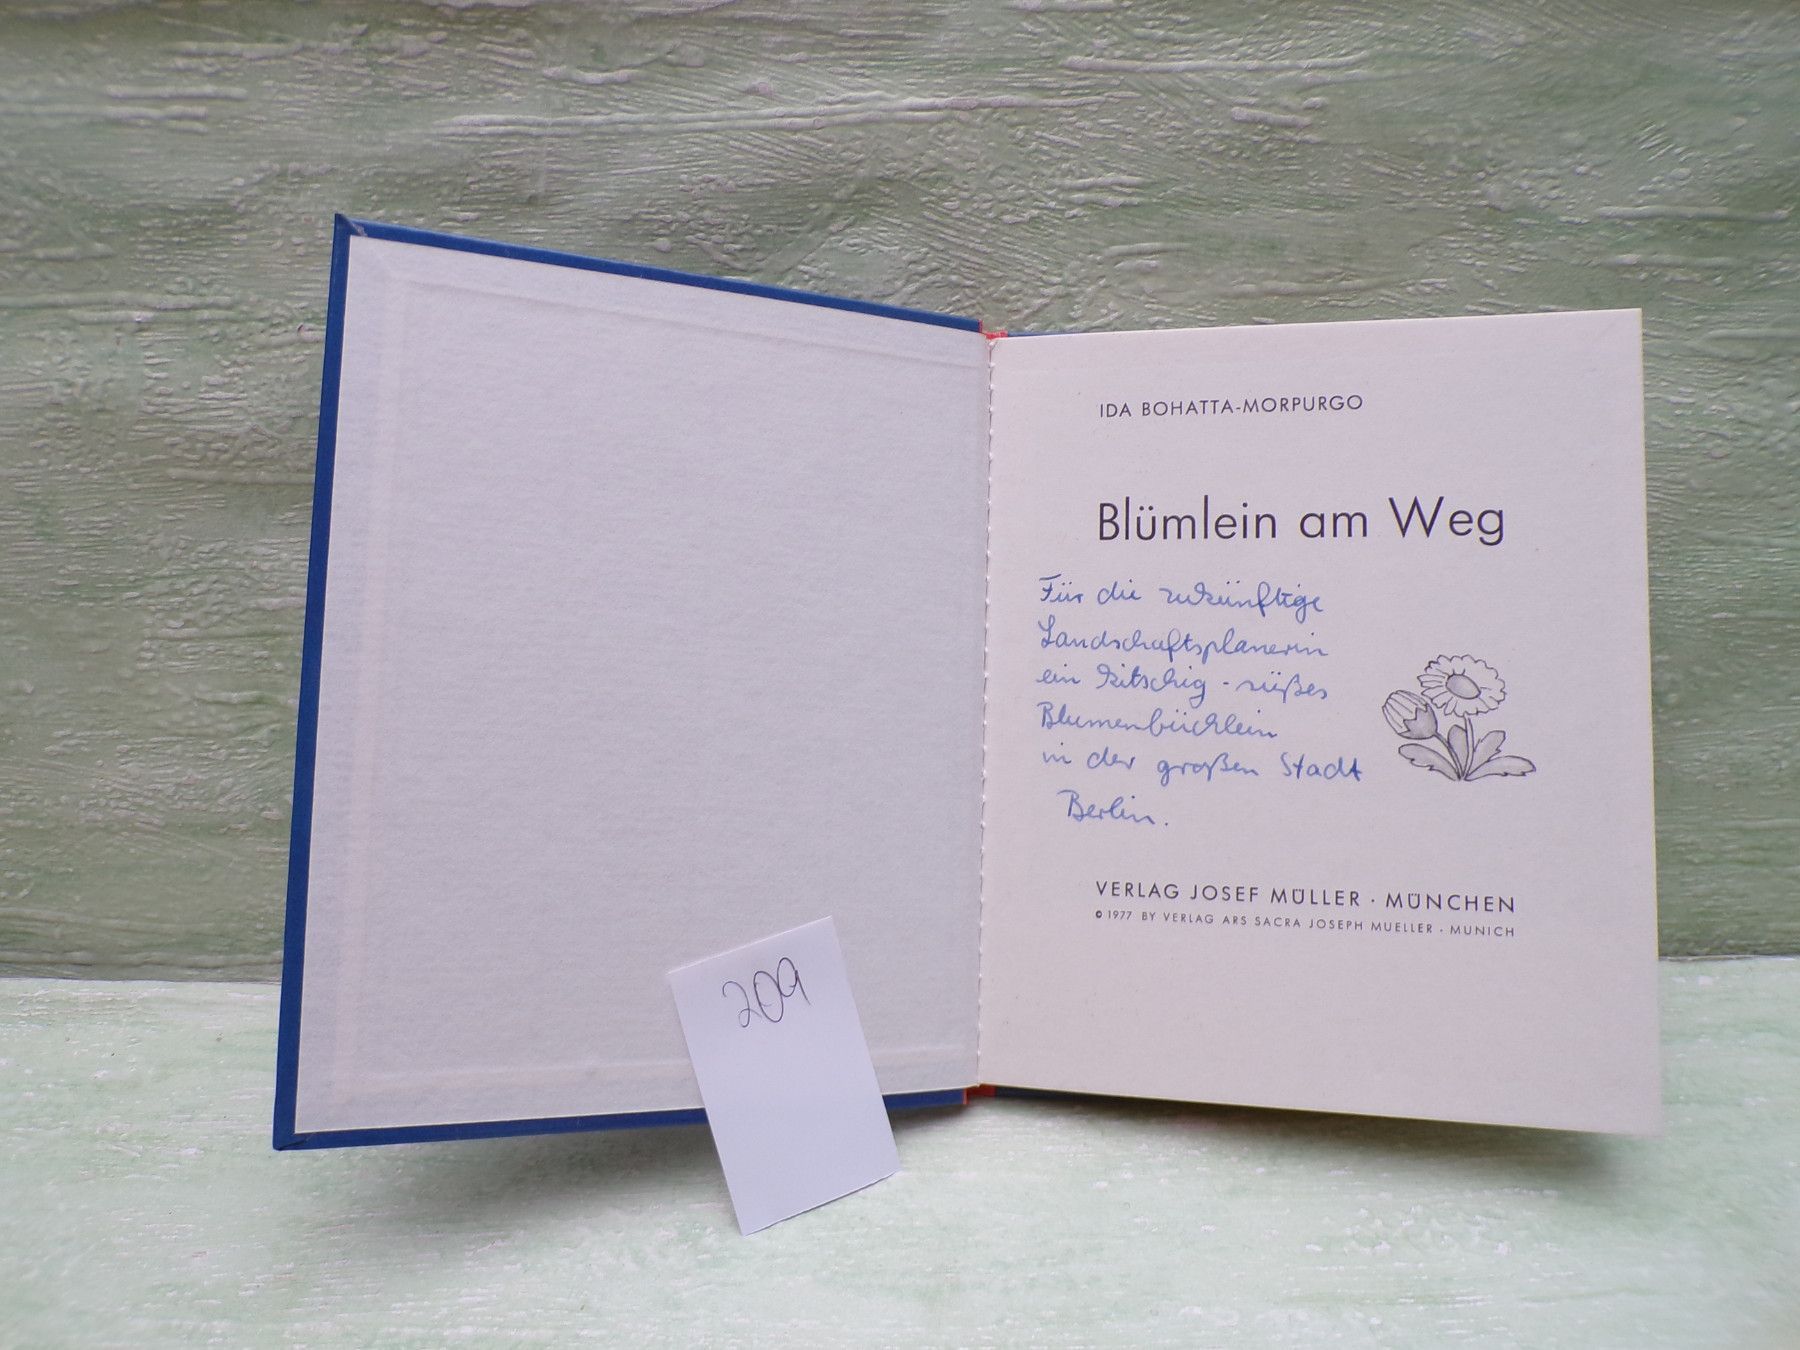 IDA BOHATTA-MORPURGO
Blümlein am Weg
Für die zukünftige
Landschaftsplanerin
ein kitschig-süßes
Blumenbüchlein
in der großen Stadt
Berlin.
VERLAG JOSEF MÜLLER · MÜNCHEN
© 1977 BY VERLAG ARS SACRA JOSEPH MUELLER · MUNICH
209